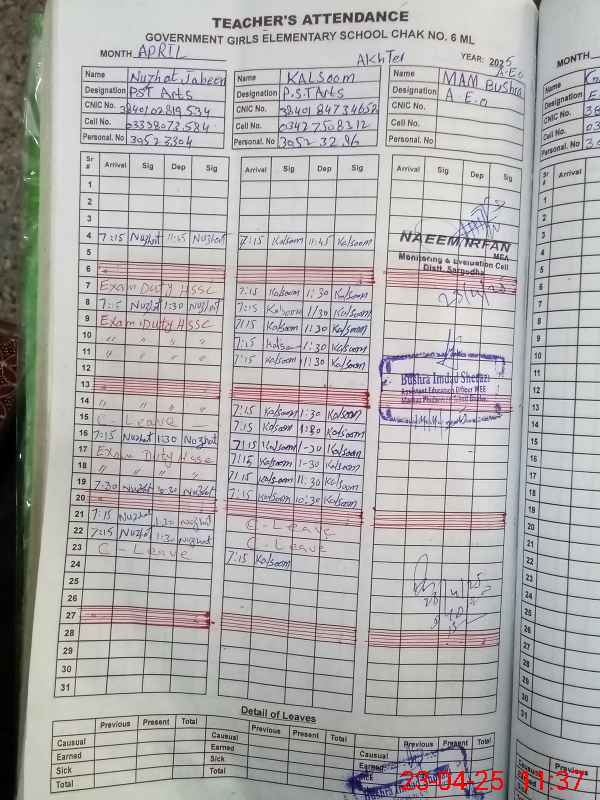 TEACHER'S ATTENDANCE
GOVERNMENT GIRLS ELEMENTARY SCHOOL CHAK NO. 6 ML
MONTH APRIL AKHTer YEAR: 2025
Name Nuzhat Jabeen Name KALSoom Name MAM BUShra
Designation PST Arts Designation P.S.T Arts Designation A.E.o
CNIC No. 3840102819534 CNIC No. 3840184734652 CNIC No.
Cell No. 03338073584 Cell No. 03427508312 Cell No.
Personal. No 30523304 Personal. No 30523286 Personal. No
Sr # Arrival Sig Dep Sig Arrival Sig Dep Sig Arrival Sig Dep Sig
1
2
3
4 7:15 Nuzhat 11:45 Nuzhat 7:15 Kalsoom 11:45 Kalsoom
NAEEM IRFAN
MEA
5 Monitoring & Evaluation Cell
Distt. Sargodha
6
7 Exam Duty HSSC 7:15 Kalsoom 1:30 Kalsoom
8 7:15 Nuzhat 1:30 Nuzhat 7:15 Kalsoom 1:30 Kalsoom
9 Exam Duty HSSC 7:15 Kalsoom 1:30 Kalsoom
10 " " " " 7:15 Kalsoom 1:30 Kalsoom
11 " " " " 7:15 Kalsoom 11:30 Kalsoom
12 Bushra Imdad Sherazi
Assistant Education Officer
13
14 " " " " 7:15 Kalsoom 1:30 Kalsoom
15 C-Leave 7:15 Kalsoom 1:30 Kalsoom
16 7:15 Nuzhat 1:30 Nuzhat 7:15 Kalsoom 1:30 Kalsoom
17 Exam Duty HSSC 7:15 Kalsoom 1:30 Kalsoom
18 " " " " 7:15 Kalsoom 11:30 Kalsoom
19 7:30 Nuzhat Nuzhat 7:15 Kalsoom 10:30 Kalsoom
20
21 7:15 Nuzhat 1:30 Nuzhat C-Leave
22 7:15 Nuzhat 1:30 Nuzhat C-Leave
23 C-Leave 7:15 Kalsoom
24
25
26
27
28
29
30
31
Detail of Leaves
Previous Present Total Previous Present Total Previous Present Total
Causual Causual Causual
Earned Earned Earned
Sick Sick
Total Total
23-04-25 11:37
MONTH
Name
Designation
CNIC No.
Cell No.
Personal. No
Sr # Arrival
1
2
3
4
5
6
7
8
9
10
11
12
13
14
15
16
17
18
19
20
21
22
23
24
25
26
27
28
29
30
31
Previous
Causual
Earned
Sick
Total